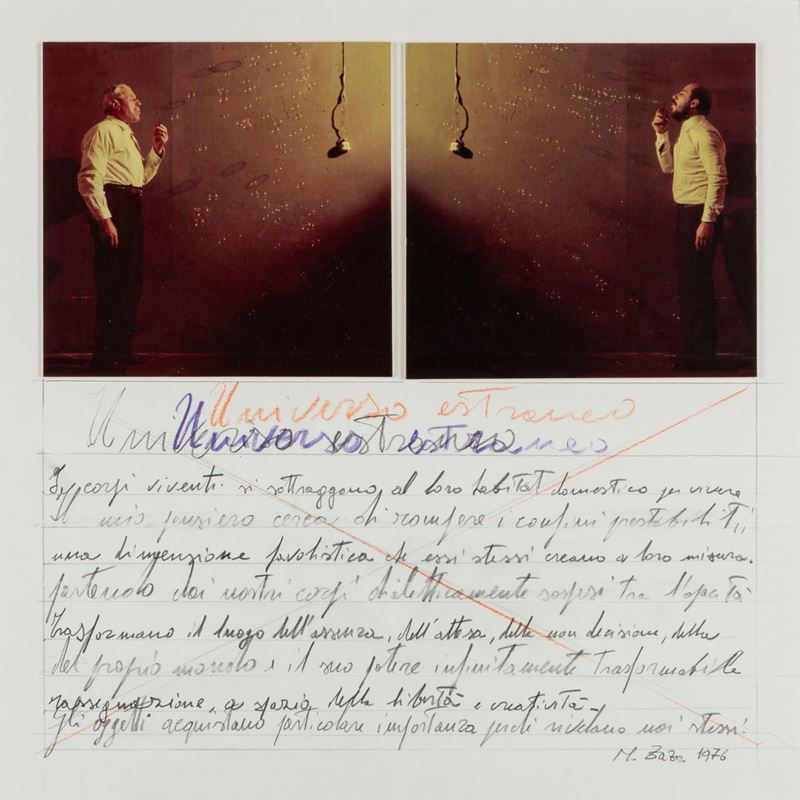 Universo estraneo
Universo estraneo
Universo estraneo
I corpi viventi si sottraggono al loro habitat domestico per vivere
Il mio pensiero cerca di rompere i confini prestabiliti,
una dimensione favolistica che essi stessi creano a loro misura.
partendo dai nostri corpi dialetticamente sospesi tra l'opacità
Trasformano il luogo dell'assenza, dell'attesa, della non decisione, della
del proprio mondo e il suo potere infinitamente trasformabile
rassegnazione, a spazio della libertà e creatività.
Gli oggetti acquistano particolare importanza perché rivelano noi stessi.
M. Zaza 1976